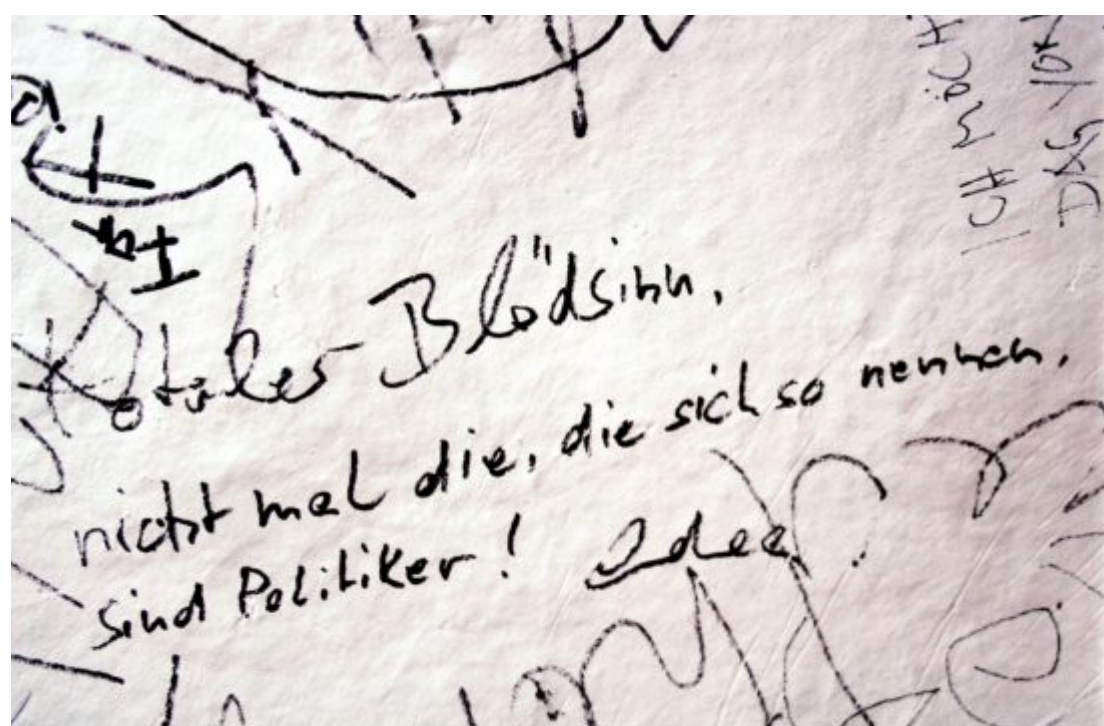 Totaler Blödsinn,
nicht mal die, die sich so nennen,
sind Politiker!
ICH MÖCH
DAS